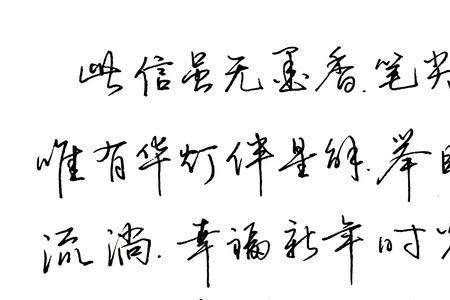 此信虽无墨香.笔尖
唯有华灯伴星.举
流淌.幸福新年时